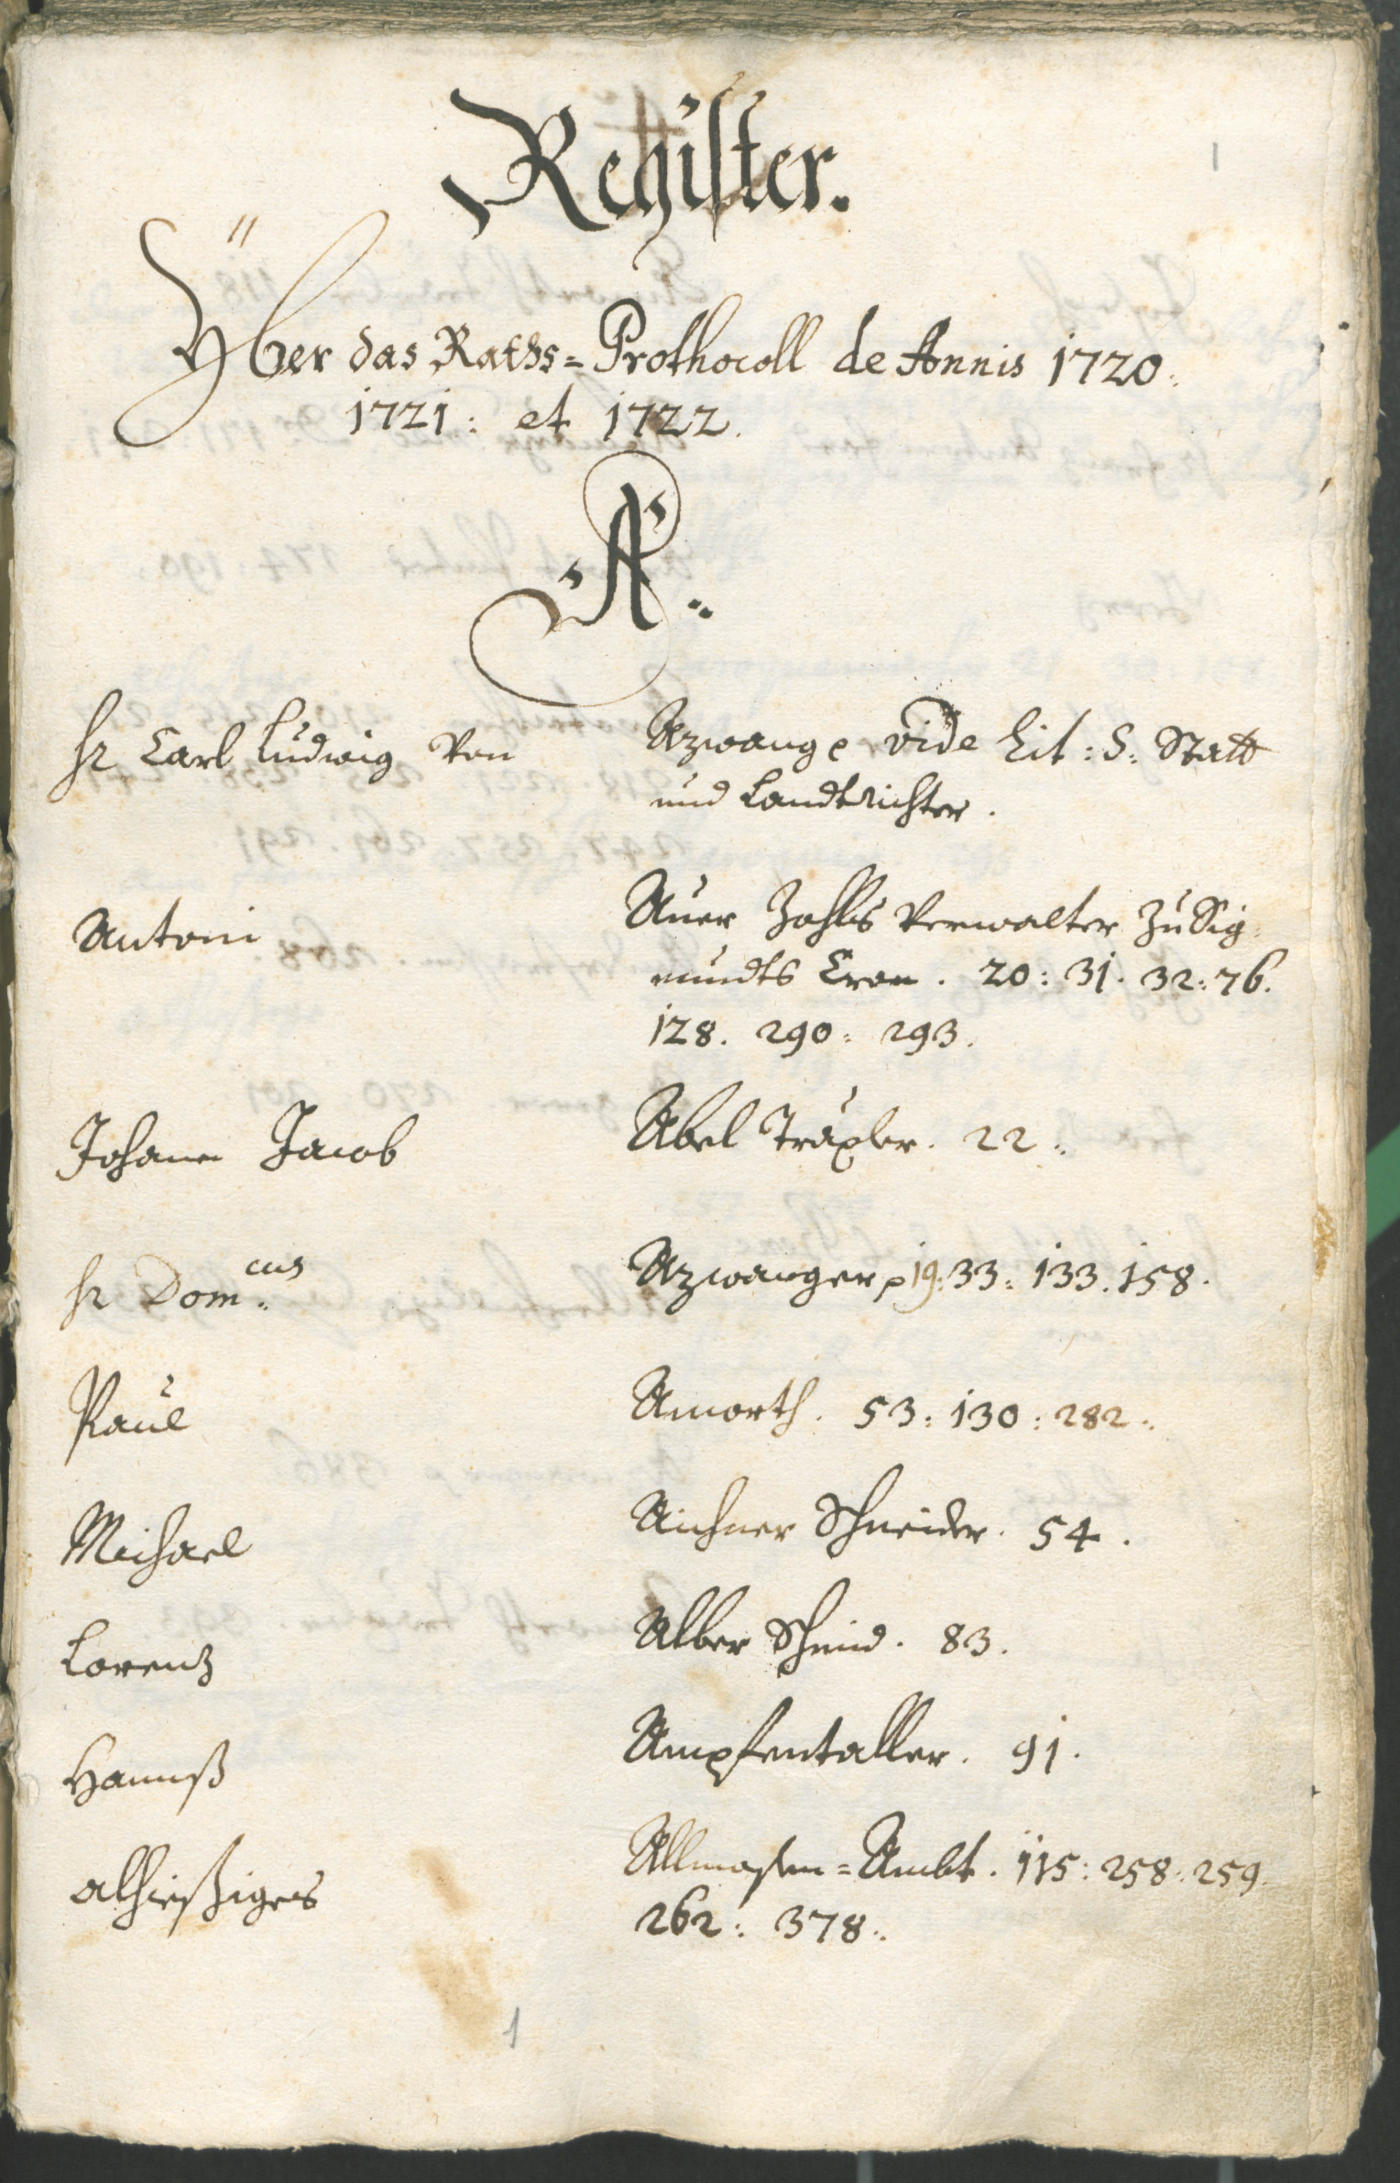 1
Register.
Ÿber das Raths=Prothocoll de Annis 1720.
1721: et 1722.
A.
Hr Carl Ludwig von Azwang p vide Lit: S: Statt
und Landtrichter.
Antoni Auer Zohlls Verwalter zu Sig=
mundts Cron. 20: 31. 32: 76.
128. 290: 293.
Johann Jacob Abel Träxler. 22.
Hr Dom:cus Azwanger p 19: 33: 133. 158.
Paul Amorth. 53: 130: 282.
Michael Aichner Schneider. 54.
Lorenz Alber Schmid. 83.
Hannß Ampfentaller. 91.
alhießiges Allmosen=Ambt. 115: 258: 259.
262: 378.
1